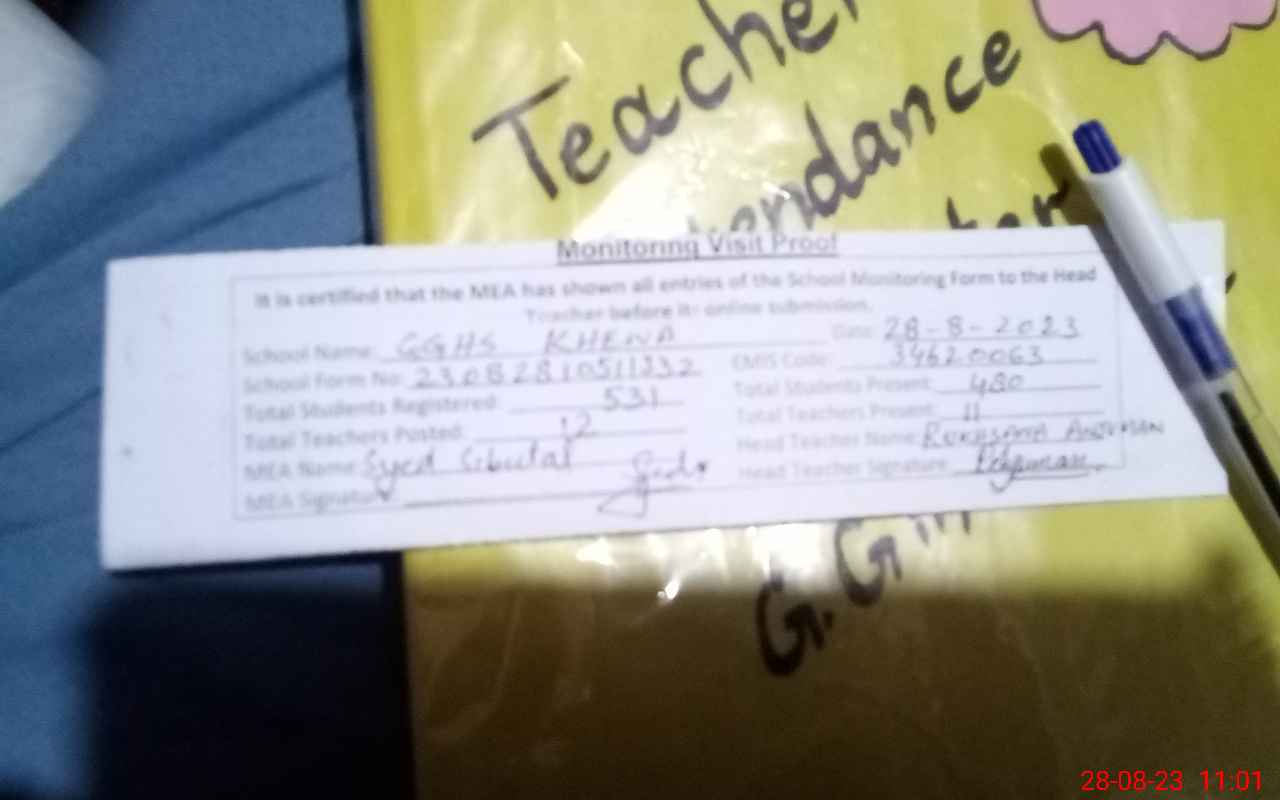 Teacher
Attendance
G.G
Monitoring Visit Proof
It is certified that the MEA has shown all entries of the School Monitoring Form to the Head
Teacher before its online submission.
School Name: GGHS KHEWA Date: 28-8-2023
School Form No: EMIS Code: 34620063
Total Students Registered: 531 Total Students Present: 480
Total Teachers Posted: 12 Total Teachers Present: 11
MEA Name: Syed Head Teacher Name:
MEA Signature: Head Teacher Signature:
28-08-23 11:01